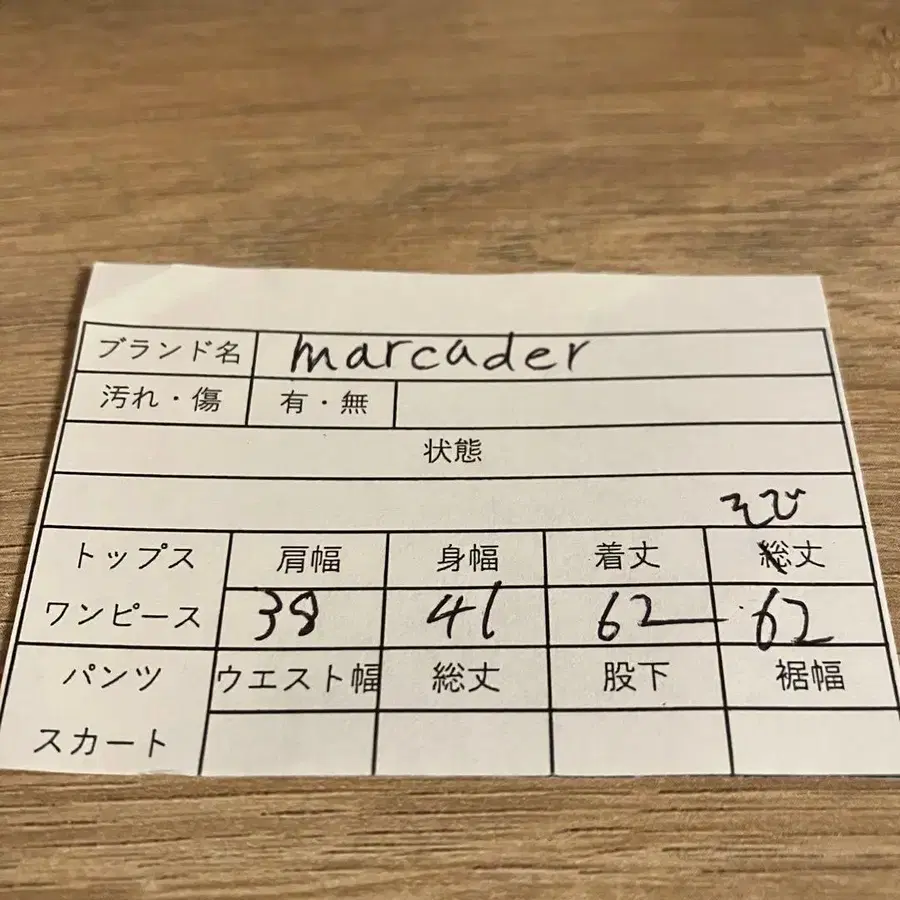 ブランド名 marcader
汚れ・傷 有・無
状態
そで
トップス 肩幅 身幅 着丈 総丈
ワンピース 38 41 62 62
パンツ ウエスト幅 総丈 股下 裾幅
スカート